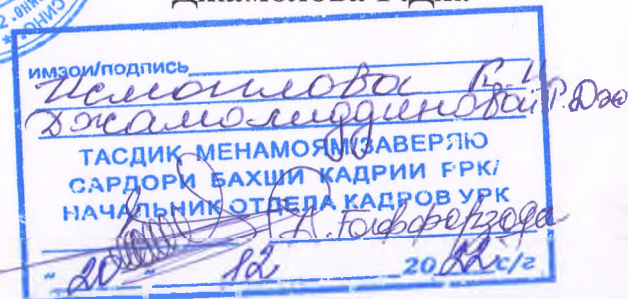 имзои/подпись
Исмоилова
Джамолиддиновой Р. Дж
ТАСДИҚ МЕНАМОЯМ/ЗАВЕРЯЮ
САРДОРИ БАХШИ КАДРИИ РРК/
НАЧАЛЬНИК ОТДЕЛА КАДРОВ УРК
А. Гаффорзода
" 20 " 12 20 22 с/г